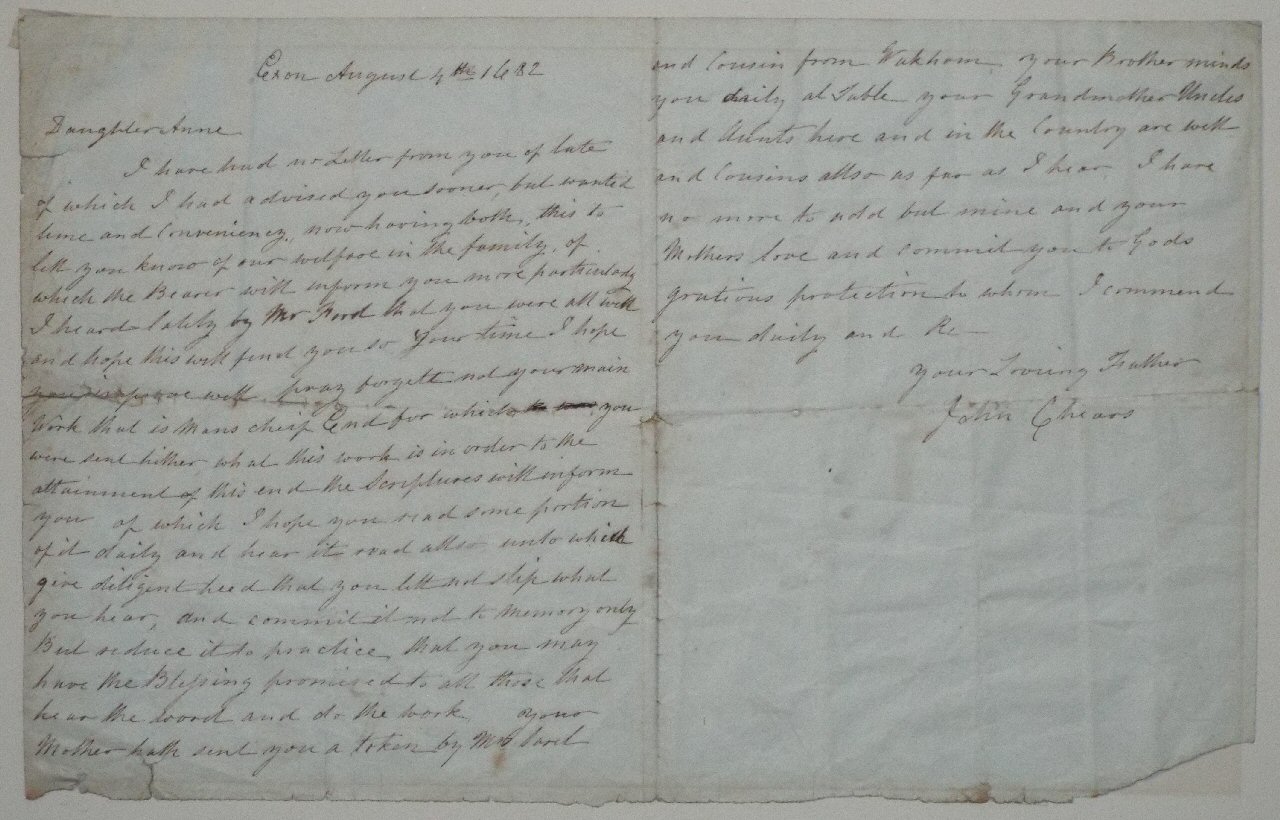 Exon August 4th 1682
Daughter Anne
I have had no Letter from you of late
of which I had advised you sooner, but wanted
time and Conveniency, now having both, this to
lett you know of our welfare in the family, of
which the Bearer will inform you more particularly
I heard lately by Mr Ford that you were all well
and hope this will find you so Your time I hope
you improve well. pray forgett not your main
Work that is Mans cheif End for which you
were sent hither what this work is in order to the
attainment of this end the Scriptures will inform
you of which I hope you read some portion
of it daily and hear it read allso unto which
give diligent heed that you lett not slip what
you hear, and commit it not to Memory only
But reduce it to practice, that you may
have the Blessing promised to all those that
hear the word and do the work. Your
Mother hath sent you a token by Mr
and Cousin from Wakham, your Brother minds
you daily at Table your Grandmother Uncles
and Aunts here and in the Country are well
and Cousins allso as far as I hear, I have
no more to add but mine and your
Mothers love and commit you to Gods
gratious protection to whom I commend
you daily and Re
Your Loving Father
John Chears